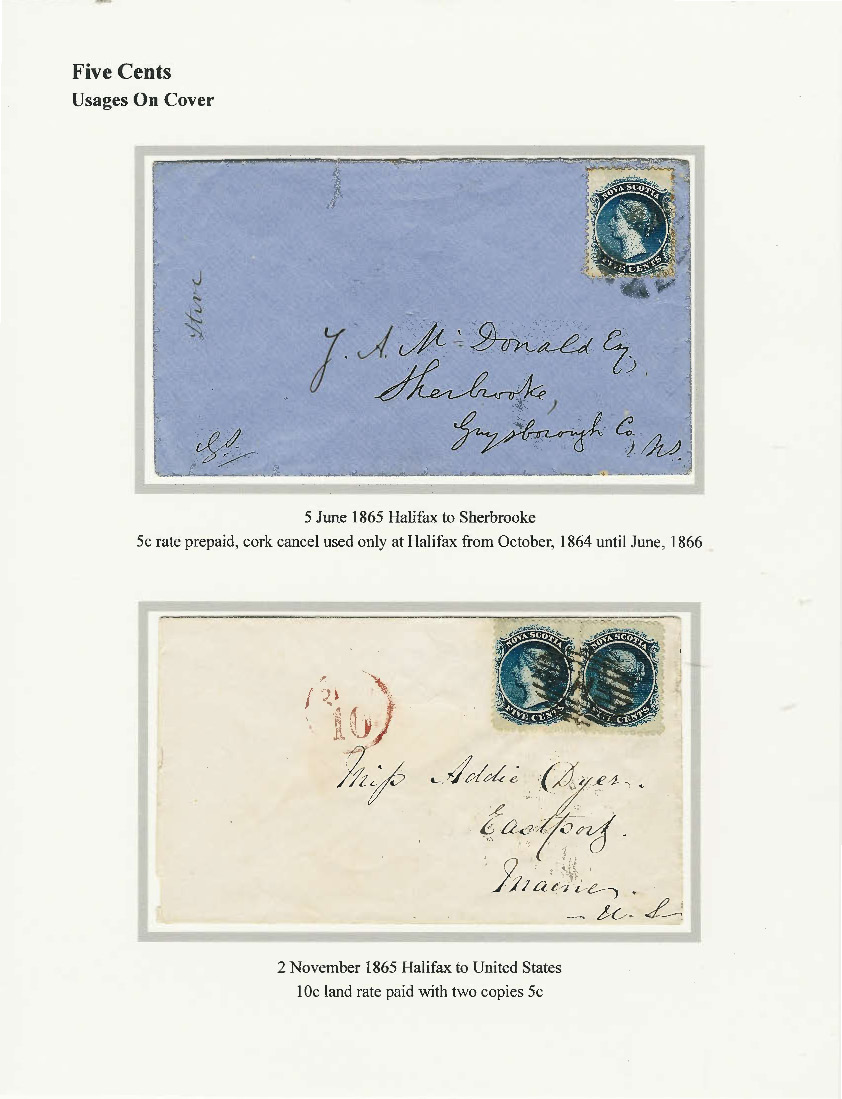 Five Cents
Usages On Cover
NOVA SCOTIA
FIVE CENTS
J. A. Mc Donald Esq.
Sherbrooke,
Guysborough Co.
N.S.
5 June 1865 Halifax to Sherbrooke
5c rate prepaid, cork cancel used only at Halifax from October, 1864 until June, 1866
NOVA SCOTIA NOVA SCOTIA
FIVE CENTS FIVE CENTS
10
Miss Addie Dyer.
Eastport.
Maine.
U. S
2 November 1865 Halifax to United States
10c land rate paid with two copies 5c